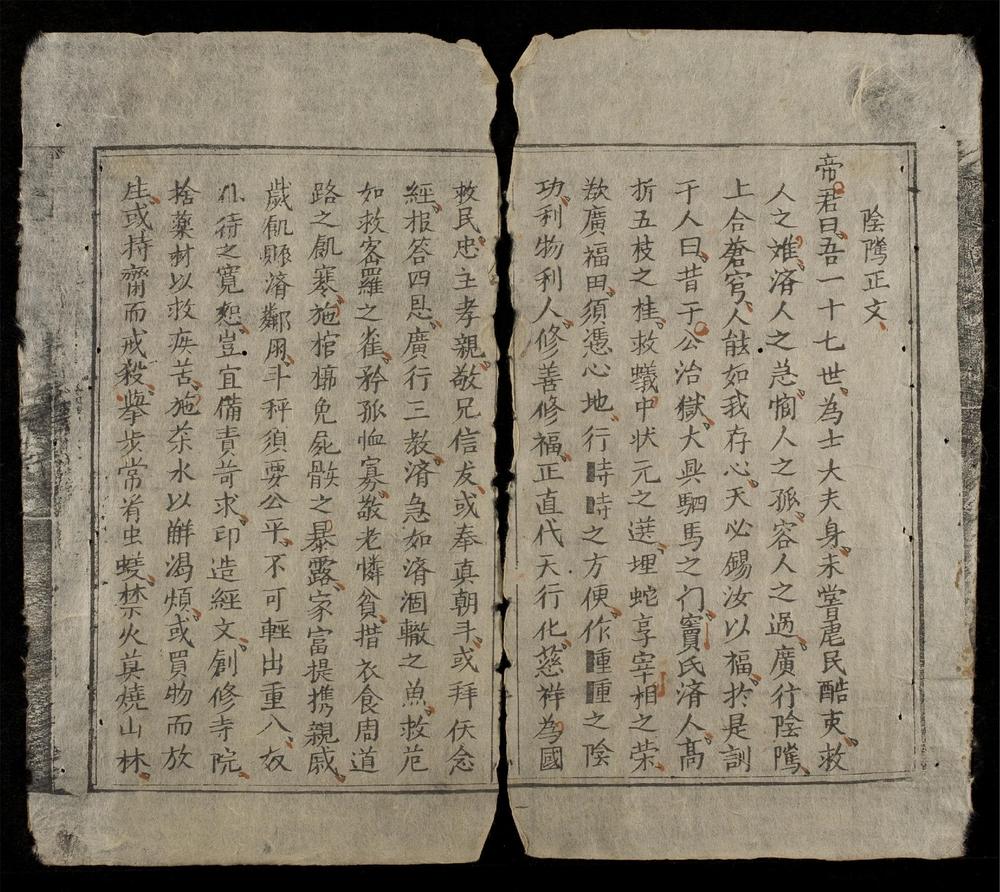 陰隲正文
帝君曰吾一十七世為士大夫身未嘗虐民酷吏救
人之难済人之急憫人之孤容人之過廣行陰隲
上合蒼穹人能如我存心天必錫汝以福於是訓
于人曰昔于公治獄大興駟馬之门竇氏済人髙
折五枝之桂救蟻中状元之選埋蛇享宰相之荣
欲廣福田須慿心地行時時之方便作種種之陰
功利物利人修善修福正直代天行化慈祥為國
救民忠主孝親敬兄信友或奉真朝斗或拜仸念
經報答四恩廣行三教済急如済涸轍之魚救危
如救密羅之雀矜孤恤寡敬老憐貧措衣食周道
路之飢寒施棺槨免屍骸之暴露家富提携親戚
歲飢賑済鄰朋斗秤須要公平不可輕出重入奴
仆待之寛恕豈宜備責苛求印造經文創修寺院
捨藥材以救疾苦施茶水以觧渴煩或買物而放
生或持齋而戒殺擧步常看虫蟻禁火莫燒山林